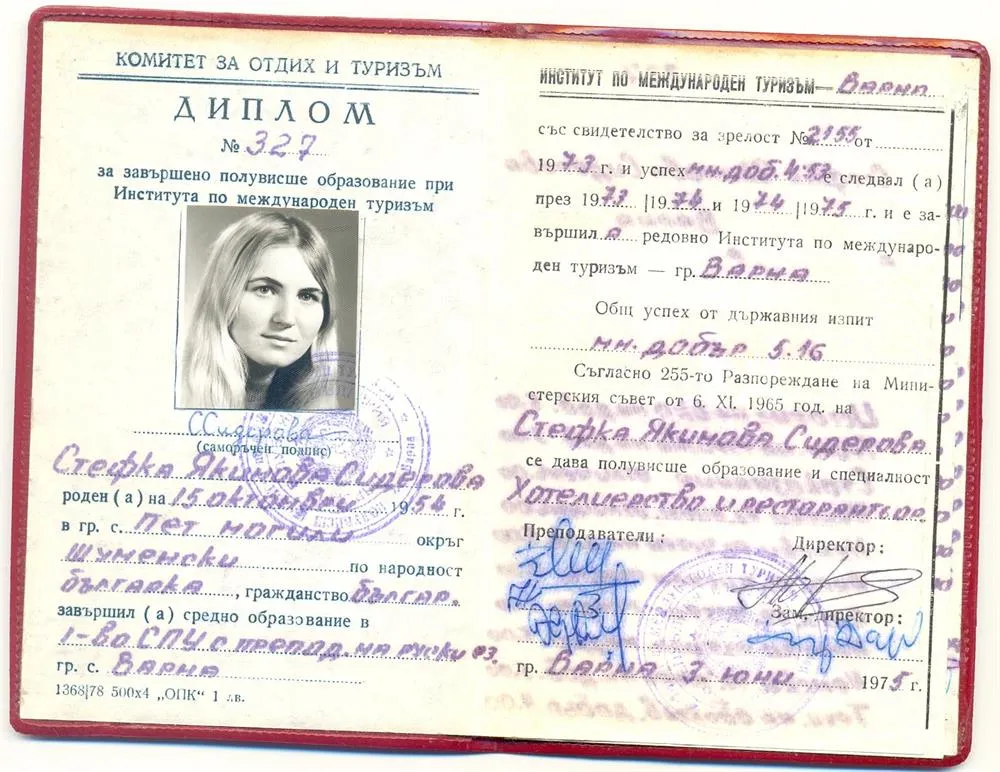 КОМИТЕТ ЗА ОТДИХ И ТУРИЗЪМ
ДИПЛОМ
№ 327
за завършено полувисше образование при
Института по международен туризъм
ССидерова
(саморъчен подпис)
Стефка Якимова Сидерова
роден (а) на 15 октомври 1954 г.
в гр. с. Пет могили окръг
Шуменски по народност
българка, гражданство българ.
завършил (а) средно образование в
I-во СПУ с препод. на руски ез.
гр. с. Варна
1368|78 500х4 „ОПК“ 1 лв.
ИНСТИТУТ ПО МЕЖДУНАРОДЕН ТУРИЗЪМ — Варна
със свидетелство за зрелост № 2155 от
1973 г. и успех мн. доб. 4.53 е следвал (а)
през 1973 |1974 и 1974 |1975 г. и е за-
вършил а редовно Института по междунаро-
ден туризъм — гр. Варна
Общ успех от държавния изпит
мн. добър 5.16
Съгласно 255-то Разпореждане на Мини-
стерския съвет от 6. XI. 1965 год. на
Стефка Якимова Сидерова
се дава полувисше образование и специалност
Хотелиерство и ресторантьор.
Преподаватели: Директор:
Зам. директор:
гр. Варна 3. юни 1975 г.